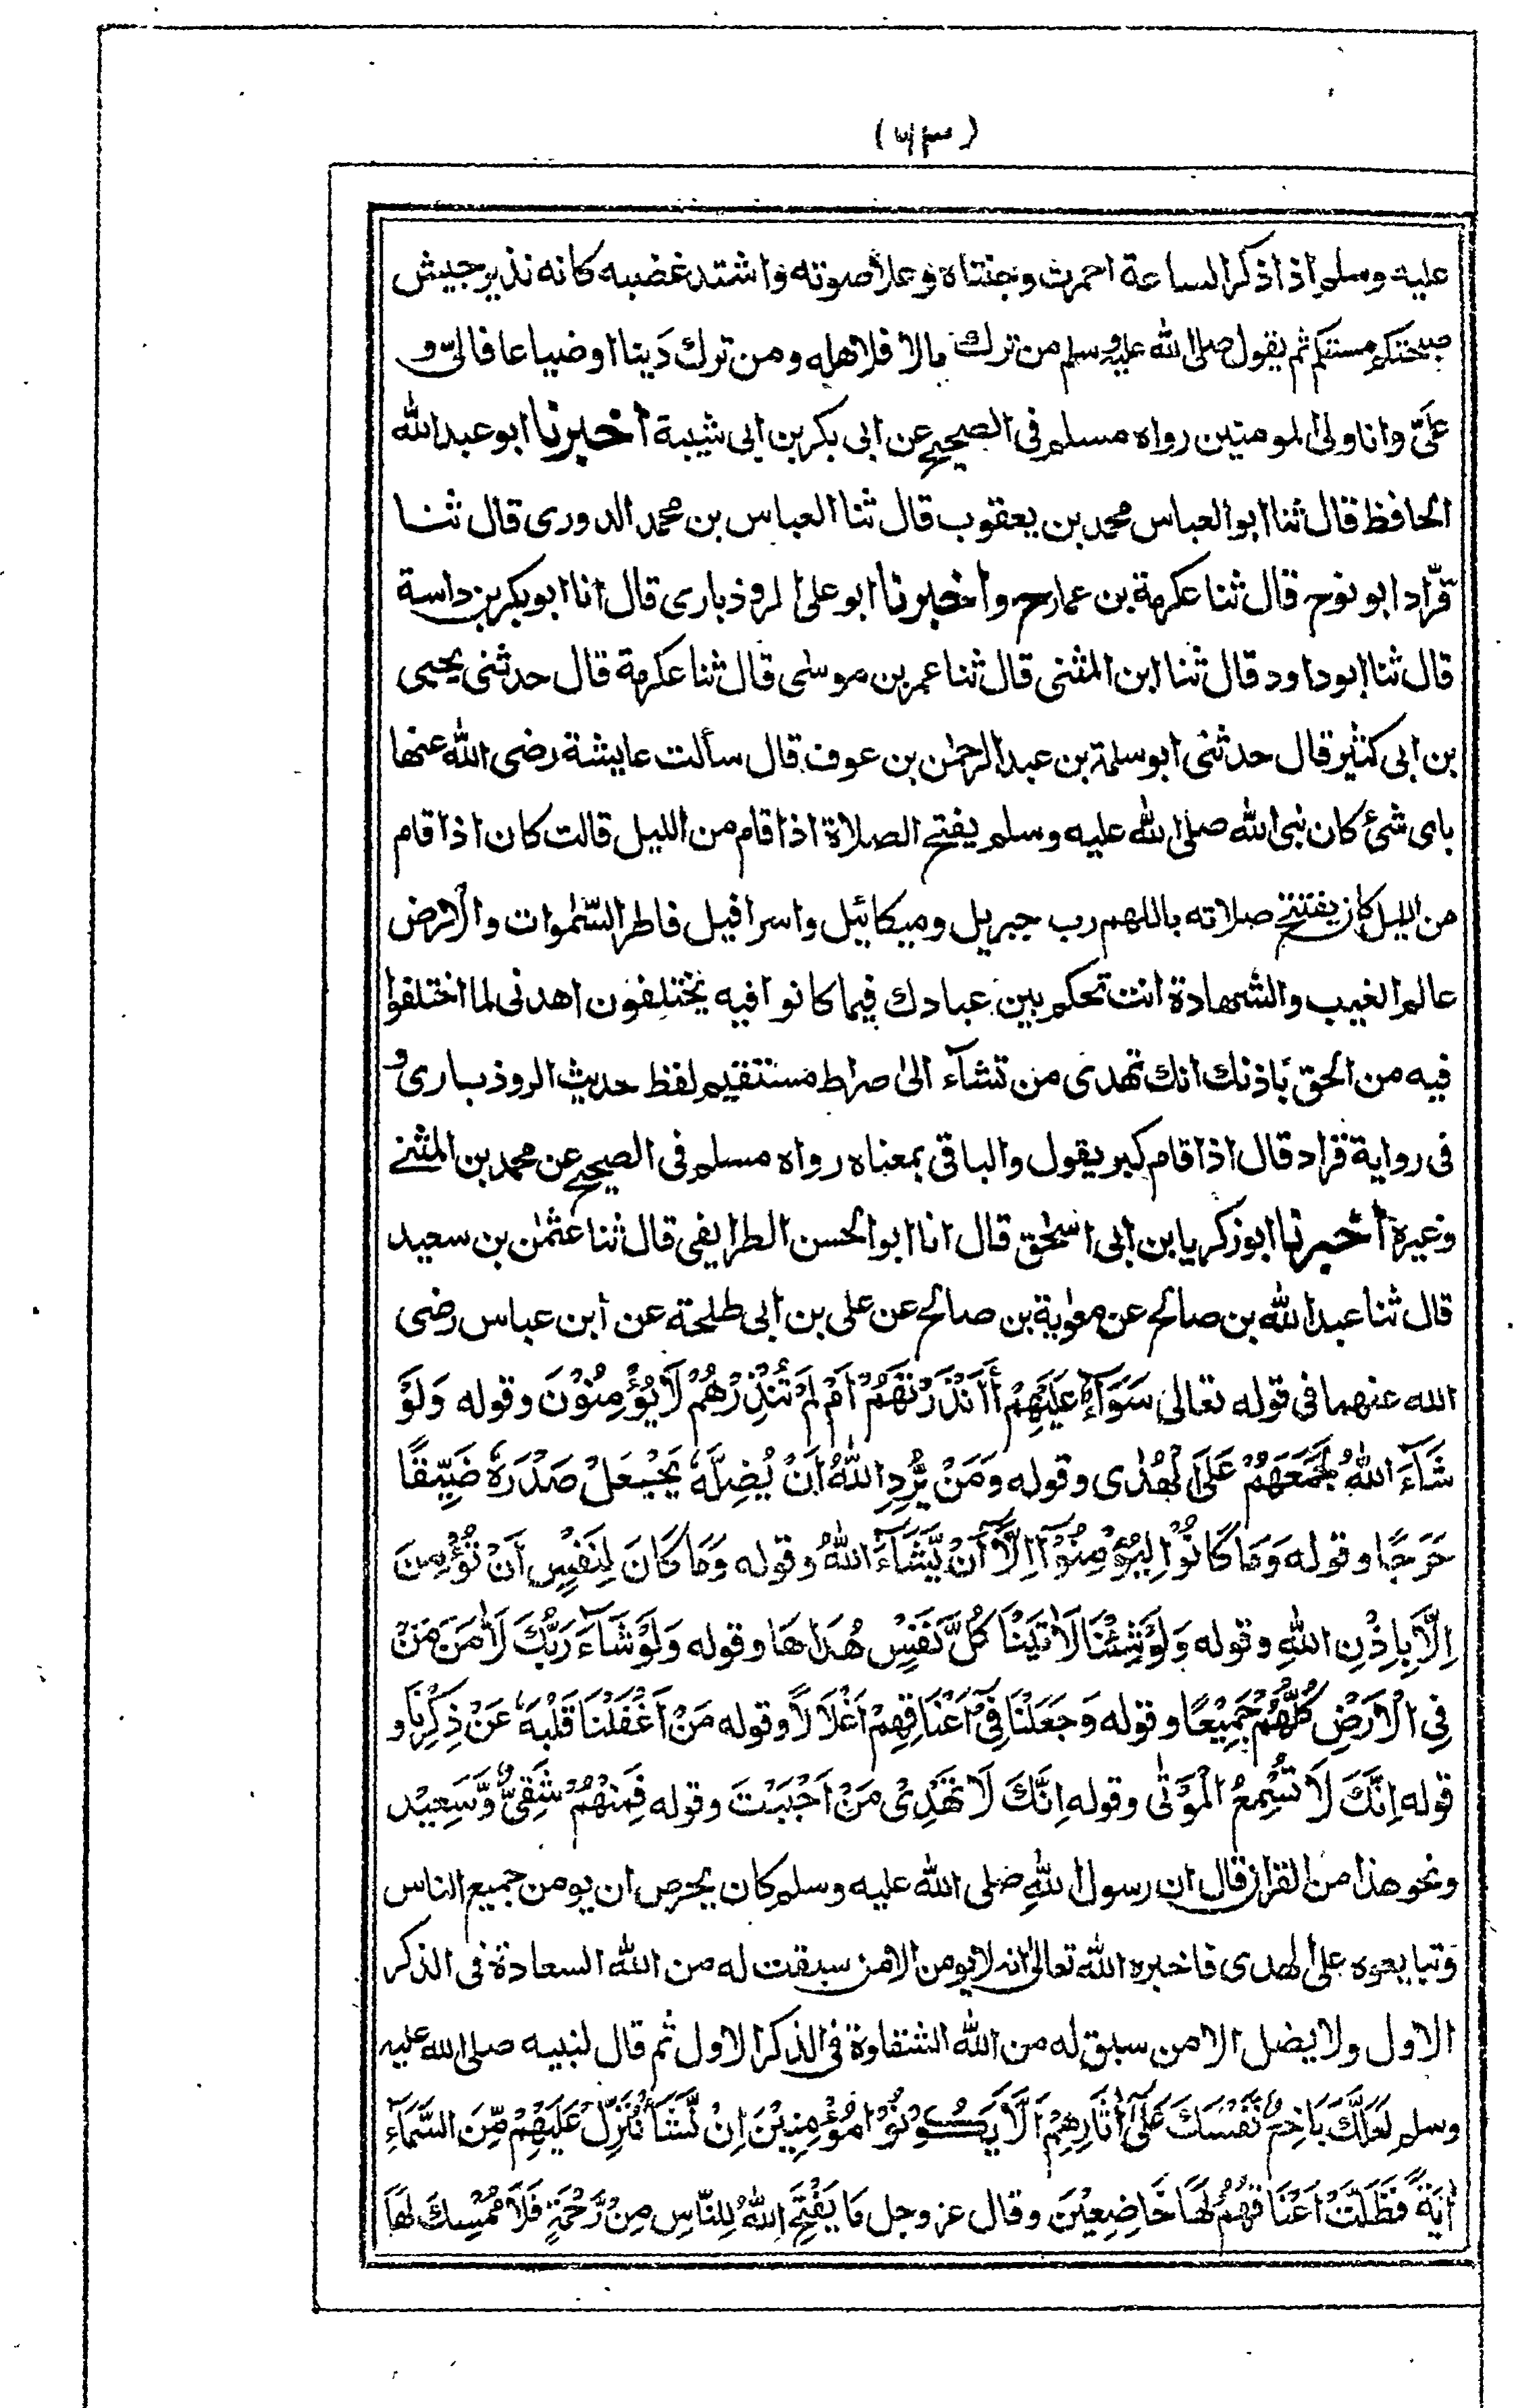 عليه وسلم اذا ذكر الساعة احمرت وجنتاه وعلا صوته واشتد غضبه كانه نذير جيش
صبحتكم مستكم ثم يقول صلى الله عليه وسلم من ترك مالا فلاهله ومن ترك دَينا او ضياعا فالىّ و
علىَّ وانا ولى المومنين رواه مسلم فى الصحيح عن ابى بكر بن ابى شيبة اخبرنا ابو عبد الله
الحافظ قال ثنا ابو العباس محمد بن يعقوب قال ثنا العباس بن محمد الدورى قال ثنا
قرّاد ابو نوح قال ثنا عكرمة بن عمار ح واخبرنا ابو على الروذبارى قال انا ابو بكر بن داسة
قال ثنا ابو داود قال ثنا ابن المثنى قال ثنا عمر بن موسى قال ثنا عكرمة قال حدثنى يحيى
بن ابى كثير قال حدثنى ابو سلمة بن عبد الرحمٰن بن عوف قال سألت عايشة رضى الله عنها
باى شئ كان نبى الله صلى الله عليه وسلم يفتح الصلاة اذا قام من الليل قالت كان اذا قام
من الليل كان يفتتح صلاته باللهم رب جبريل وميكائيل واسرافيل فاطر السّمٰوات والارض
عالم الغيب والشهادة انت تحكم بين عبادك فيما كانوا فيه يختلفون اهدنى لما اختلفوا
فيه من الحق باذنك انك تهدى من تشآء الىٰ صراط مستقيم لفظ حديث الروذبارى و
فى رواية قراد قال اذا قام كبر يقول والباقى بمعناه رواه مسلم فى الصحيح عن محمد بن المثنى
وغيره اخبرنا ابو زكريا بن ابى اسحٰق قال انا ابو الحسن الطرايفى قال ثنا عثمٰن بن سعيد
قال ثنا عبد الله بن صالح عن معٰوية بن صالح عن على بن ابى طلحة عن ابن عباس رضى
الله عنهما فى قوله تعالى سَوَآءٌ عَلَيْهِمْ أَأَنْذَرْتَهُمْ اَمْ لَمْ تُنْذِرْهُمْ لَا يُؤْمِنُوْنَ وقوله وَلَوْ
شَآءَ اللهُ لَجَمَعَهُمْ عَلَى الْهُدٰى وقوله وَمَنْ يُّرِدِ اللهُ اَنْ يُضِلَّهٗ يَجْعَلْ صَدْرَهٗ ضَيِّقًا
حَرَجًا وقوله وَمَا كَانُوْا لِيُؤْمِنُوْآ اِلَّآ اَنْ يَّشَآءَ اللهُ وقوله وَمَا كَانَ لِنَفْسٍ اَنْ تُؤْمِنَ
اِلَّا بِاِذْنِ اللهِ وقوله وَلَوْ شِئْنَا لَاٰتَيْنَا كُلَّ نَفْسٍ هُدَاهَا وقوله وَلَوْ شَآءَ رَبُّكَ لَاٰمَنَ مَنْ
فِى الْاَرْضِ كُلُّهُمْ جَمِيْعًا وقوله وَجَعَلْنَا فِىْٓ اَعْنَاقِهِمْ اَغْلَالًا وقوله مَنْ اَغْفَلْنَا قَلْبَهٗ عَنْ ذِكْرِنَا و
قوله اِنَّكَ لَا تُسْمِعُ الْمَوْتٰى وقوله اِنَّكَ لَا تَهْدِىْ مَنْ اَحْبَبْتَ وقوله فَمِنْهُمْ شَقِىٌّ وَّسَعِيْد
ونحو هذا من القران قال ان رسول اللهِ صلى الله عليه وسلم كان يحرص ان يومن جميع الناس
وتبايعوه على الهدى فاخبره الله تعالىٰ انه لا يومن الا من سبقت له من الله السعادة فى الذكر
الاول ولا يضل الا من سبق له من الله الشقاوة فى الذكر الاول ثم قال لنبيه صلى الله عليه
وسلم لَعَلَّكَ بَاخِعٌ نَفْسَكَ عَلٰٓى اٰثَارِهِمْ اَلَّا يَكُوْنُوْا مُؤْمِنِيْنَ اِنْ نَّشَأْ نُنَزِّلْ عَلَيْهِمْ مِّنَ السَّمَآءِ
اٰيَةً فَظَلَّتْ اَعْنَاقُهُمْ لَهَا خَاضِعِيْنَ وقال عز وجل مَا يَفْتَحِ اللهُ لِلنَّاسِ مِنْ رَّحْمَةٍ فَلَا مُمْسِكَ لَهَا